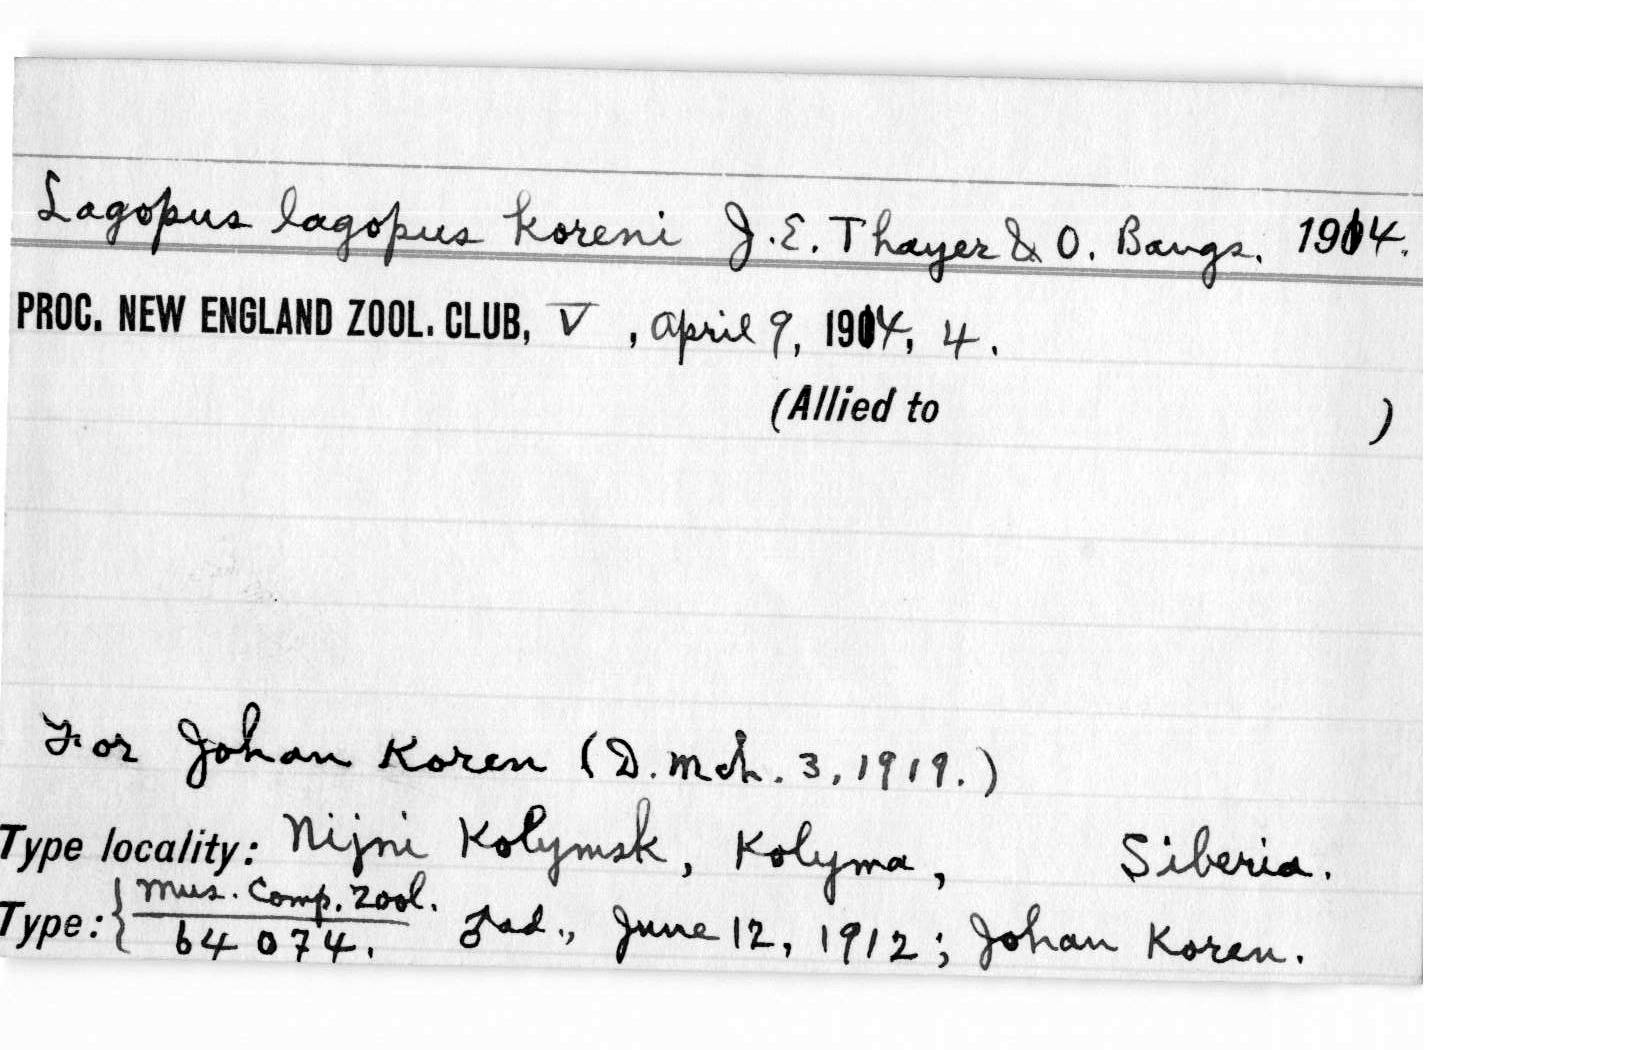 Lagopus lagopus koreni J.E. Thayer & O. Bangs. 1914.
PROC. NEW ENGLAND ZOOL. CLUB, V, April 9, 1914, 4.
(Allied to )
For Johan Koren (D. Mch. 3, 1919.)
Type locality: Nijni Kolymsk, Kolyma, Siberia.
Type: { Mus. Comp. Zool.
64074. ♂ ad., June 12, 1912; Johan Koren.